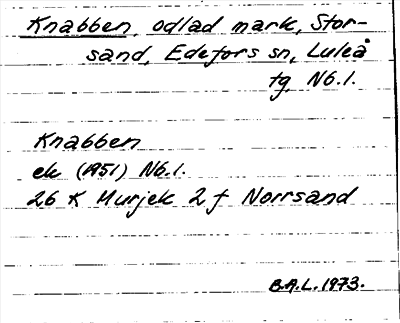 Knabben, odlad mark, Stor-
sand, Edefors sn, Luleå
tg, Nb.l.
Knabben
ek (1951) Nb.l.
26 K Murjek 2 f Norrsand
B.A.L. 1973.